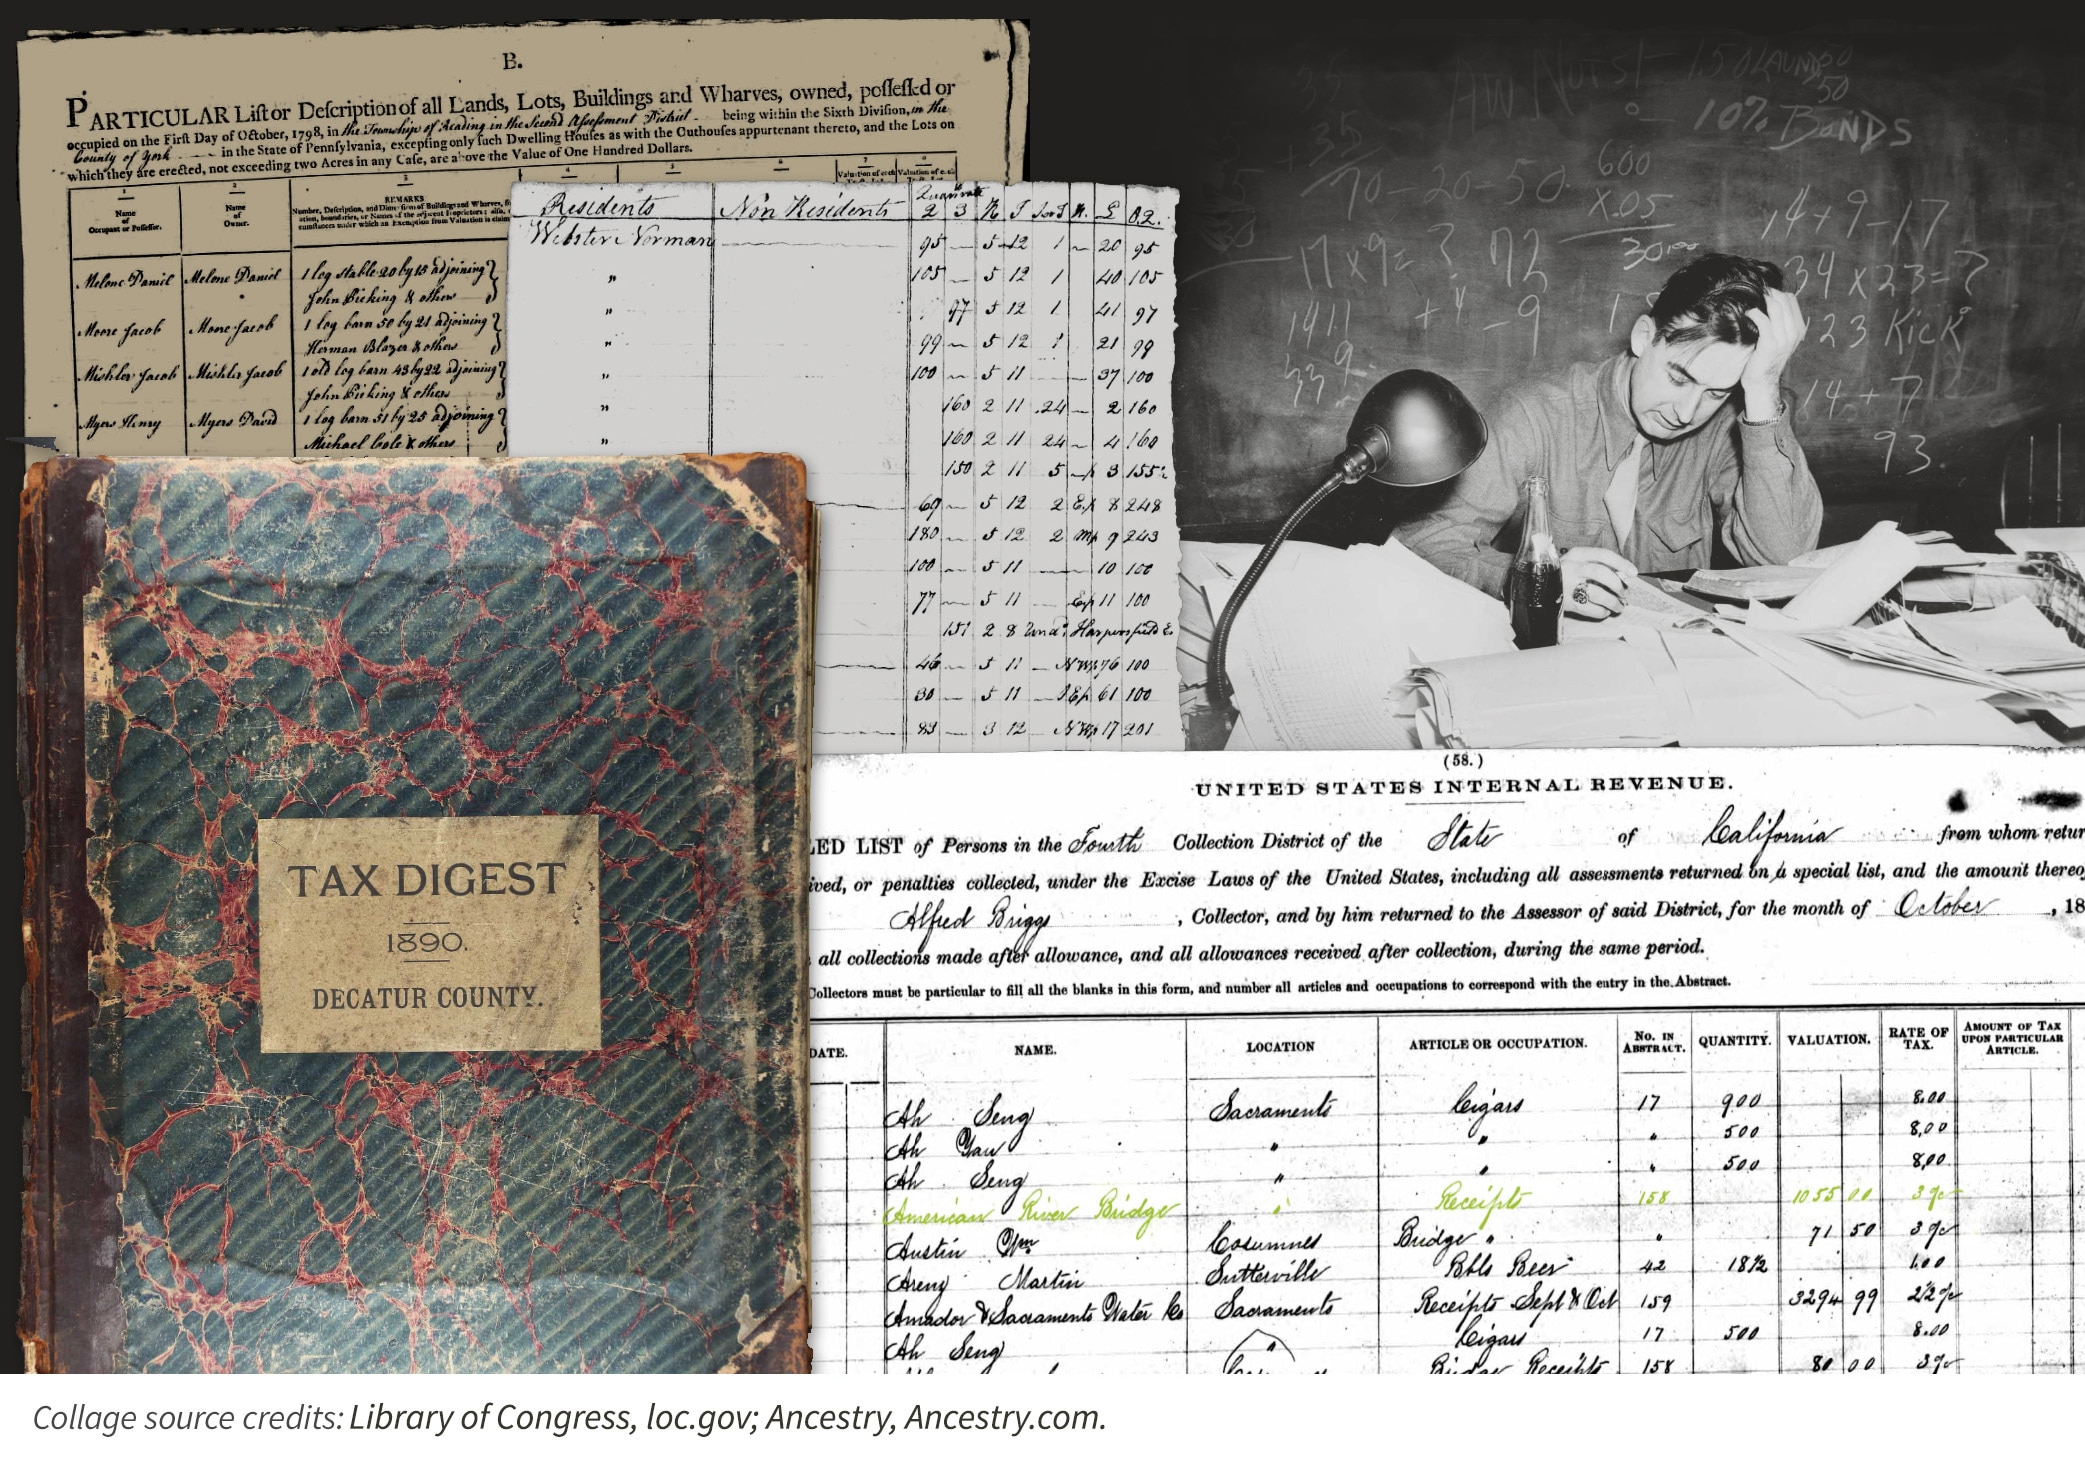 B.
PARTICULAR List or Description of all Lands, Lots, Buildings and Wharves, owned, possessed or
occupied on the First Day of October, 1798, in the Township of Reading in the Second Assessment District being within the Sixth Division, in the
County of York in the State of Pennsylvania, excepting only such Dwelling Houses as with the Outhouses appurtenant thereto, and the Lots on
which they are erected, not exceeding two Acres in any Case, are above the Value of One Hundred Dollars.
1 2 3 4 5 6 7 8
Name of Occupant or Possessor.
Name of Owner.
REMARKS
Melone Daniel Melone Daniel 1 log stable 20 by 15 adjoining
John Picking & others
Moore Jacob Moore Jacob 1 log barn 50 by 21 adjoining
Herman Blazer & others
Mishler Jacob Mishler Jacob 1 old log barn 43 by 22 adjoining
John Picking & others
Myers Henry Myers David 1 log barn 51 by 25 adjoining
Michael Cole & others
Residents Non Residents 2 3
Webster Norman 95 — 5 12 1 20 95
" 105 — 5 12 1 40 105
" 97 5 12 1 41 97
" 99 — 5 12 1 21 99
" 100 — 5 11 37 100
" 160 2 11 24 2 160
" 160 2 11 24 4 160
150 2 11 5 3 155
69 — 5 12 2 8 248
180 — 5 12 2 9 243
100 — 5 11 10 100
77 — 5 11 11 100
151 2 8
46 — 5 11 76 100
30 — 5 11 61 100
83 — 3 12 17 201
AW NUTS!
10% BONDS
35
70
20-50
600
x.05
30.00
14+9-17
17x9=?
72
34 x 23=?
1411
+4
-9
123 Kick
14+7
93.
TAX DIGEST
1890.
DECATUR COUNTY.
(58.)
UNITED STATES INTERNAL REVENUE.
LED LIST of Persons in the Fourth Collection District of the State of California from whom retur
ived, or penalties collected, under the Excise Laws of the United States, including all assessments returned on a special list, and the amount thereo
Alfred Briggs, Collector, and by him returned to the Assessor of said District, for the month of October, 18
all collections made after allowance, and all allowances received after collection, during the same period.
Collectors must be particular to fill all the blanks in this form, and number all articles and occupations to correspond with the entry in the Abstract.
DATE. NAME. LOCATION ARTICLE OR OCCUPATION. No. IN ABSTRACT. QUANTITY. VALUATION. RATE OF TAX. AMOUNT OF TAX UPON PARTICULAR ARTICLE.
Ah Seng Sacramento Cigars 17 900 8.00
Ah Yau " " " 500 8,00
Ah Seng " " " 500 8,00
American River Bridge " Receipts 158 1055 00 3 %
Austin Wm Cosumnes Bridge " " 71 50 3 %
Areny Martin Sutterville Bbls Beer 42 18 1/2 1.00
Amador & Sacramento Water Co Sacramento Receipts Sept & Oct 159 3294 99 2 1/2 %
Ah Seng " Cigars 17 500 8.00
Bridge Receipts 158 80 00 3 %
Collage source credits: Library of Congress, loc.gov; Ancestry, Ancestry.com.